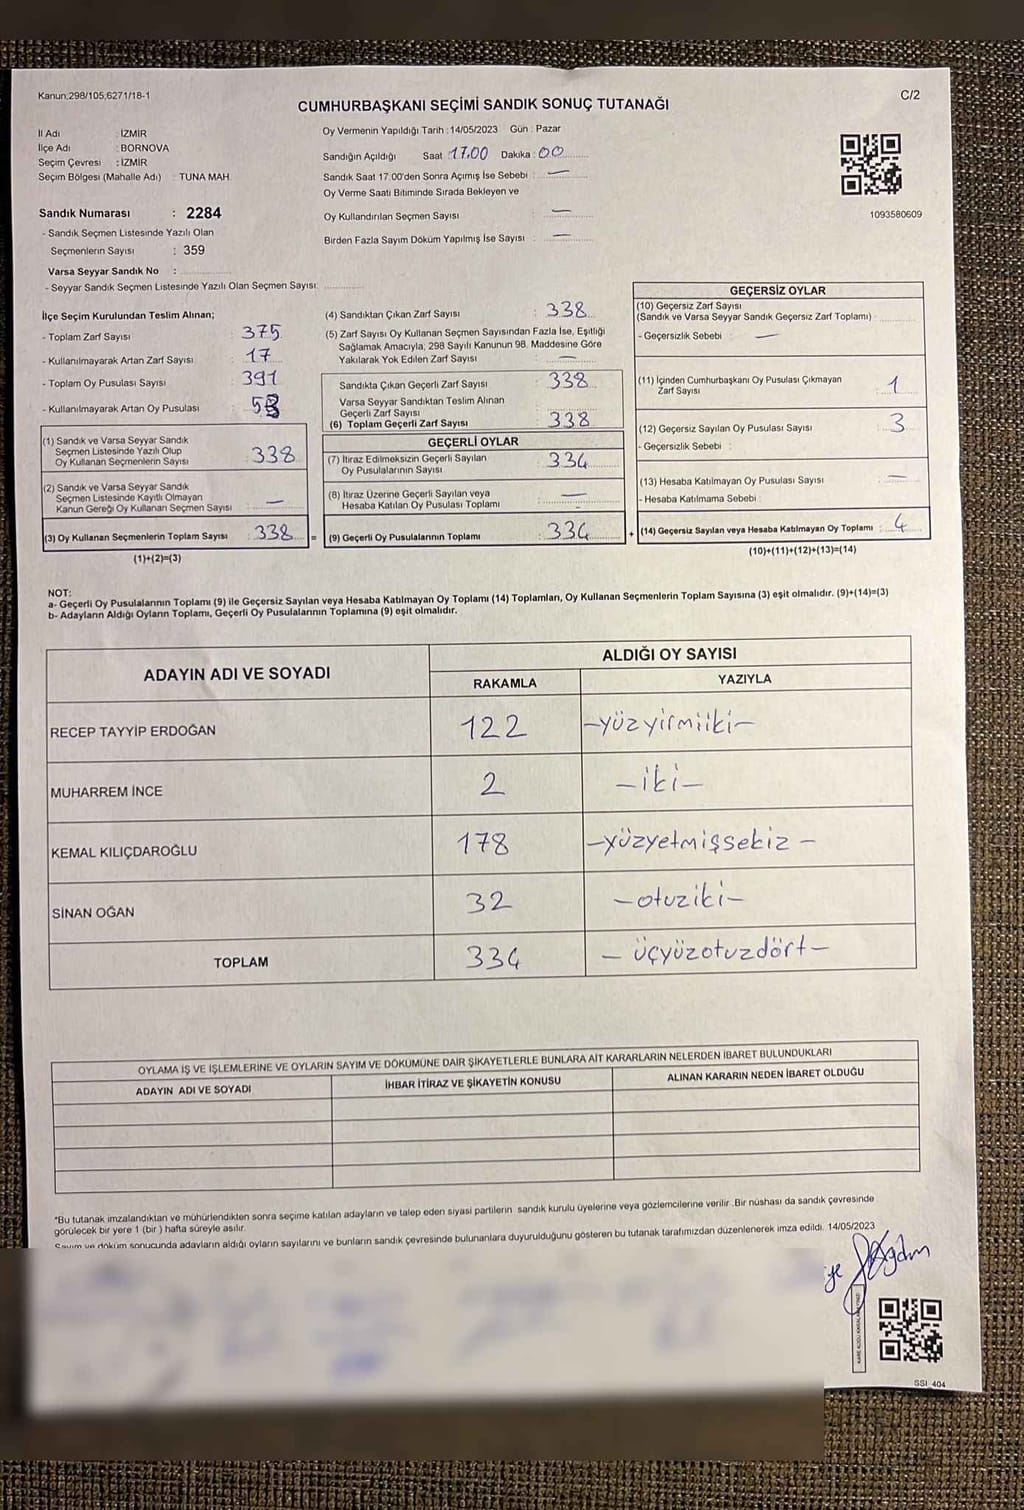 Kanun;298/105,6271/18-1
CUMHURBAŞKANI SEÇİMİ SANDIK SONUÇ TUTANAĞI
C/2
İl Adı : İZMİR
İlçe Adı : BORNOVA
Seçim Çevresi : İZMİR
Seçim Bölgesi (Mahalle Adı) : TUNA MAH.
Sandık Numarası : 2284
- Sandık Seçmen Listesinde Yazılı Olan
Seçmenlerin Sayısı : 359
Varsa Seyyar Sandık No :
- Seyyar Sandık Seçmen Listesinde Yazılı Olan Seçmen Sayısı:
Oy Vermenin Yapıldığı Tarih : 14/05/2023 Gün : Pazar
Sandığın Açıldığı Saat : 17.00 Dakika : 00
Sandık Saat 17:00'den Sonra Açımış İse Sebebi : —
Oy Verme Saati Bitiminde Sırada Bekleyen ve
Oy Kullandırılan Seçmen Sayısı : —
Birden Fazla Sayım Döküm Yapılmış İse Sayısı : —
1093580609
İlçe Seçim Kurulundan Teslim Alınan;
- Toplam Zarf Sayısı : 375
- Kullanılmayarak Artan Zarf Sayısı : 17
- Toplam Oy Pusulası Sayısı : 391
- Kullanılmayarak Artan Oy Pusulası : 53
(1) Sandık ve Varsa Seyyar Sandık
Seçmen Listesinde Yazılı Olup
Oy Kullanan Seçmenlerin Sayısı : 338
(2) Sandık ve Varsa Seyyar Sandık
Seçmen Listesinde Kayıtlı Olmayan
Kanun Gereği Oy Kullanan Seçmen Sayısı : —
(3) Oy Kullanan Seçmenlerin Toplam Sayısı : 338
(1)+(2)=(3)
=
(4) Sandıktan Çıkan Zarf Sayısı : 338
(5) Zarf Sayısı Oy Kullanan Seçmen Sayısından Fazla İse, Eşitliği
Sağlamak Amacıyla, 298 Sayılı Kanunun 98. Maddesine Göre
Yakılarak Yok Edilen Zarf Sayısı : —
Sandıkta Çıkan Geçerli Zarf Sayısı : 338
Varsa Seyyar Sandıktan Teslim Alınan
Geçerli Zarf Sayısı :
(6) Toplam Geçerli Zarf Sayısı : 338
GEÇERLİ OYLAR
(7) İtiraz Edilmeksizin Geçerli Sayılan
Oy Pusulalarının Sayısı : 334
(8) İtiraz Üzerine Geçerli Sayılan veya
Hesaba Katılan Oy Pusulası Toplamı : —
(9) Geçerli Oy Pusulalarının Toplamı : 334
+
GEÇERSİZ OYLAR
(10) Geçersiz Zarf Sayısı
(Sandık ve Varsa Seyyar Sandık Geçersiz Zarf Toplamı) :
- Geçersizlik Sebebi : —
(11) İçinden Cumhurbaşkanı Oy Pusulası Çıkmayan
Zarf Sayısı : 1
(12) Geçersiz Sayılan Oy Pusulası Sayısı : 3
- Geçersizlik Sebebi :
(13) Hesaba Katılmayan Oy Pusulası Sayısı : —
- Hesaba Katılmama Sebebi :
(14) Geçersiz Sayılan veya Hesaba Katılmayan Oy Toplamı : 4
(10)+(11)+(12)+(13)=(14)
NOT:
a- Geçerli Oy Pusulalarının Toplamı (9) ile Geçersiz Sayılan veya Hesaba Katılmayan Oy Toplamı (14) Toplamları, Oy Kullanan Seçmenlerin Toplam Sayısına (3) eşit olmalıdır. (9)+(14)=(3)
b- Adayların Aldığı Oyların Toplamı, Geçerli Oy Pusulalarının Toplamına (9) eşit olmalıdır.
ADAYIN ADI VE SOYADI
ALDIĞI OY SAYISI
RAKAMLA YAZIYLA
RECEP TAYYİP ERDOĞAN 122 -yüzyirmiiki-
MUHARREM İNCE 2 -iki-
KEMAL KILIÇDAROĞLU 178 -yüzyetmişsekiz-
SİNAN OĞAN 32 -otuziki-
TOPLAM 334 - üçyüzotuzdört-
OYLAMA İŞ VE İŞLEMLERİNE VE OYLARIN SAYIM VE DÖKÜMÜNE DAİR ŞİKAYETLERLE BUNLARA AİT KARARLARIN NELERDEN İBARET BULUNDUKLARI
ADAYIN ADI VE SOYADI İHBAR İTİRAZ VE ŞİKAYETİN KONUSU ALINAN KARARIN NEDEN İBARET OLDUĞU
*Bu tutanak imzalandıktan ve mühürlendikten sonra seçime katılan adayların ve talep eden siyasi partilerin sandık kurulu üyelerine veya gözlemcilerine verilir .Bir nüshası da sandık çevresinde
görülecek bir yere 1 (bir ) hafta süreyle asılır.
Sayım ve döküm sonucunda adayların aldığı oyların sayılarını ve bunların sandık çevresinde bulunanlara duyurulduğunu gösteren bu tutanak tarafımızdan düzenlenerek imza edildi. 14/05/2023
SSI_404